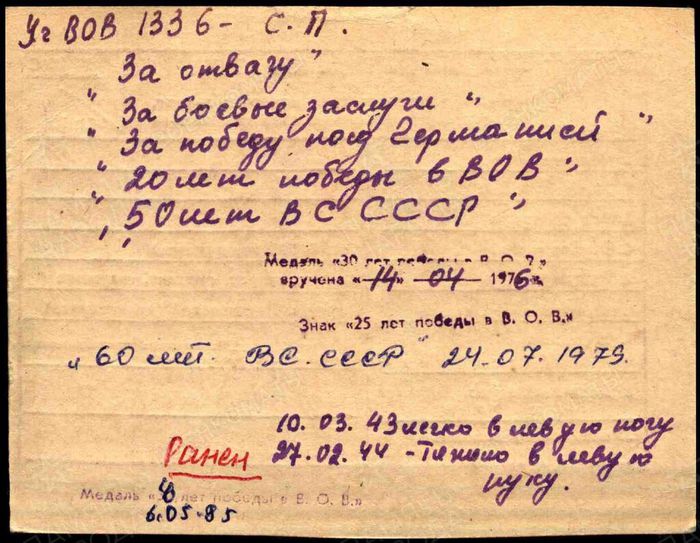 Уг ВОВ 1336 - С. П.
"За отвагу"
"За боевые заслуги"
"За победу над Германией"
"20 лет победы в ВОВ"
"50 лет ВС СССР"
Медаль «30 лет победы в В. О. В.»
вручена «14» 04 1976 г.
Знак «25 лет победы в В. О. В.»
"60 лет. ВС. СССР" 24.07.1979.
10. 03. 43 легко в левую ногу
Ранен 27.02.44 - Тяжело в левую
руку.
Медаль «40 лет победы в В. О. В.»
6.05.85